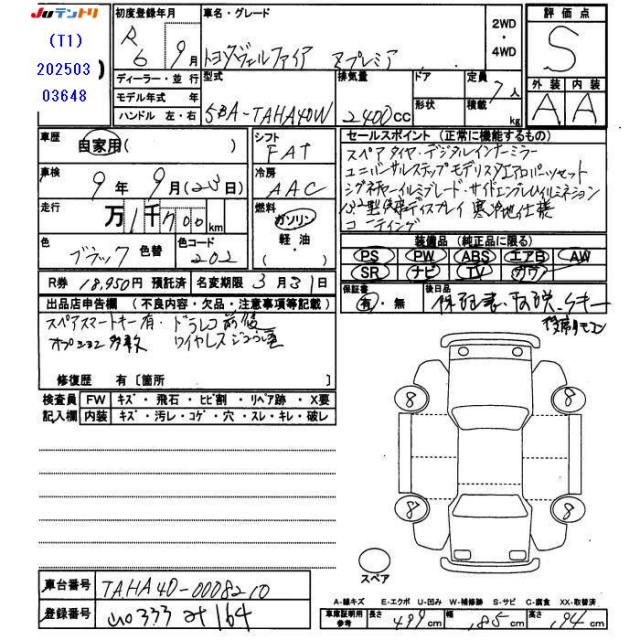 JUテントリ
(T1)
202503
03648
初度登録年月
R 6 年 9月
車名・グレード
トヨタヴェルファイア Zプレミア
2WD・4WD
評価点
S
外装 内装
A A
ディーラー・並行
モデル年式 年
ハンドル 左・右
型式
5BA-TAHA40W
排気量
2400CC
ドア
形状
定員
7人
積載
kg
車歴
自家用( )
シフト
FAT
セールスポイント(正常に機能するもの)
スペアタイヤ・デジタルインナーミラー
ユニバーサルステップ モデリスタエアロパーツセット
シグネチャーイルミブレード・サイドエンブレムイルミネーション
ディスプレイ 寒冷地仕様
コーティング
車検
9年 9月(23日)
冷房
AAC
走行
万 1千700km
燃料
ガソリン
軽油
( )
色
ブラック
色替
色コード
202
装備品(純正品に限る)
PS PW ABS エアB AW
SR ナビ TV カワ
R券 18,950円 預託済
名変期限 3月31日
保証書
有・無
後日品
保証書、取説、キー
出品店申告欄(不良内容・欠品・注意事項等記載)
スペアスマートキー有・ドラレコ前後
オプション多数 ワイヤレス
修復歴 有[箇所 ]
検査員記入欄
FW キズ・飛石・ヒビ割・リペア跡・X要
内装 キズ・汚レ・コゲ・穴・スレ・キレ・破レ
8 8
8 8
スペア
車台番号
TAHA40-0008210
登録番号
333 164
A-線キズ E-エクボ U-凹み W-補修跡 S-サビ C-腐食 XX-取替済
車庫証明用参考
長さ 499cm 幅 185cm 高さ 194cm